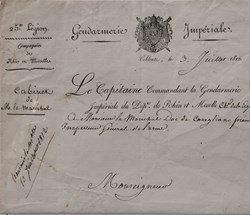 25e Légion
Gendarmerie Impériale.
Compagnie
de Rhin et Moselle.
Coblence, le 3 Juillet 1812
Cabinet
de Mr. le Maréchal
Le Capitaine Commandant la Gendarmerie
Impériale du Dépt. de Rhin et Moselle,
à Monsieur le Maréchal Duc de Conegliano, premier
Inspecteur Général de l'arme
Monseigneur